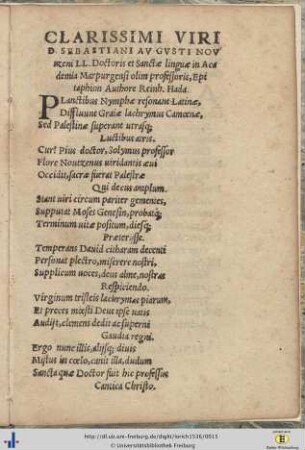 CLARISSIMI VIRI
D. SEBASTIANI AVGVSTI NOV
zeni LL. Doctoris et Sanctæ linguæ in Aca
demia Marpurgensi olim professoris, Epi
taphion Authore Reinh. Hada.
PLanctibus Nymphæ resonant Latinæ,
Diffluunt Graiæ lachrymis Camœnæ,
Sed Palestinæ superant utrasq;
Luctibus acris.
Cur? Pius doctor, Solymus professor
Flore Nouzenus uiridantis æui
Occidit, sacræ fuerat Palestræ
Qui decus amplum.
Stant uiri circum pariter gementes,
Supputat Moses Genesin, probatq;
Terminum uitæ positum, diesq;
Præterijsse.
Temperans Dauid citharam decenti
Personat plectro, miserere nostri,
Supplicum uoces, deus alme, nostras
Respiciendo.
Virginum tristeis lachrymas piarum,
Et preces mœsti Deus ipse uatis
Audijt, clemens dedit ac superni
Gaudia regni.
Ergo nunc illis, alijsq; diuis
Mistus in cœlo, canit illa, dudum
Sancta quæ Doctor fuit hic professus
Cantica Christo.
http://dl.ub.uni-freiburg.de/diglit/lorich1536/0015
© Universitätsbibliothek Freiburg